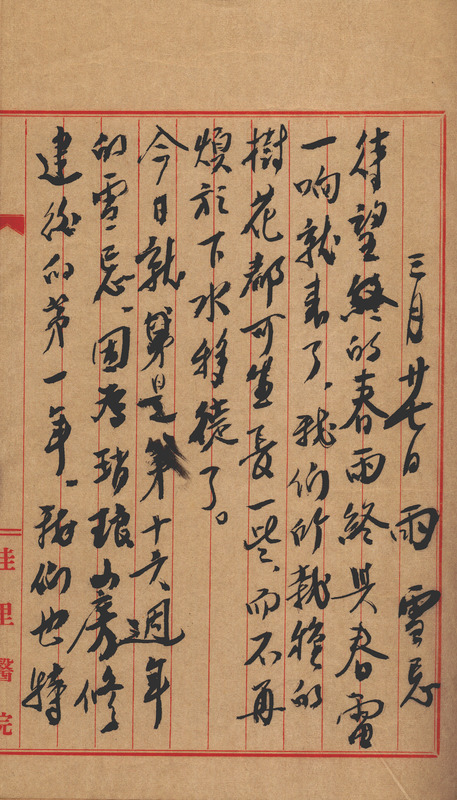 三月廿七日 雨 雪忌
待望終的春雨終與春雷
一响就来了，我们所栽種的
樹花都可生長一些、而不再
煩於下水移徒了。
今日就算是第十六週年
的雪忌、因為琑琅山房修
建後的第一年。我们也特
佳里醫院